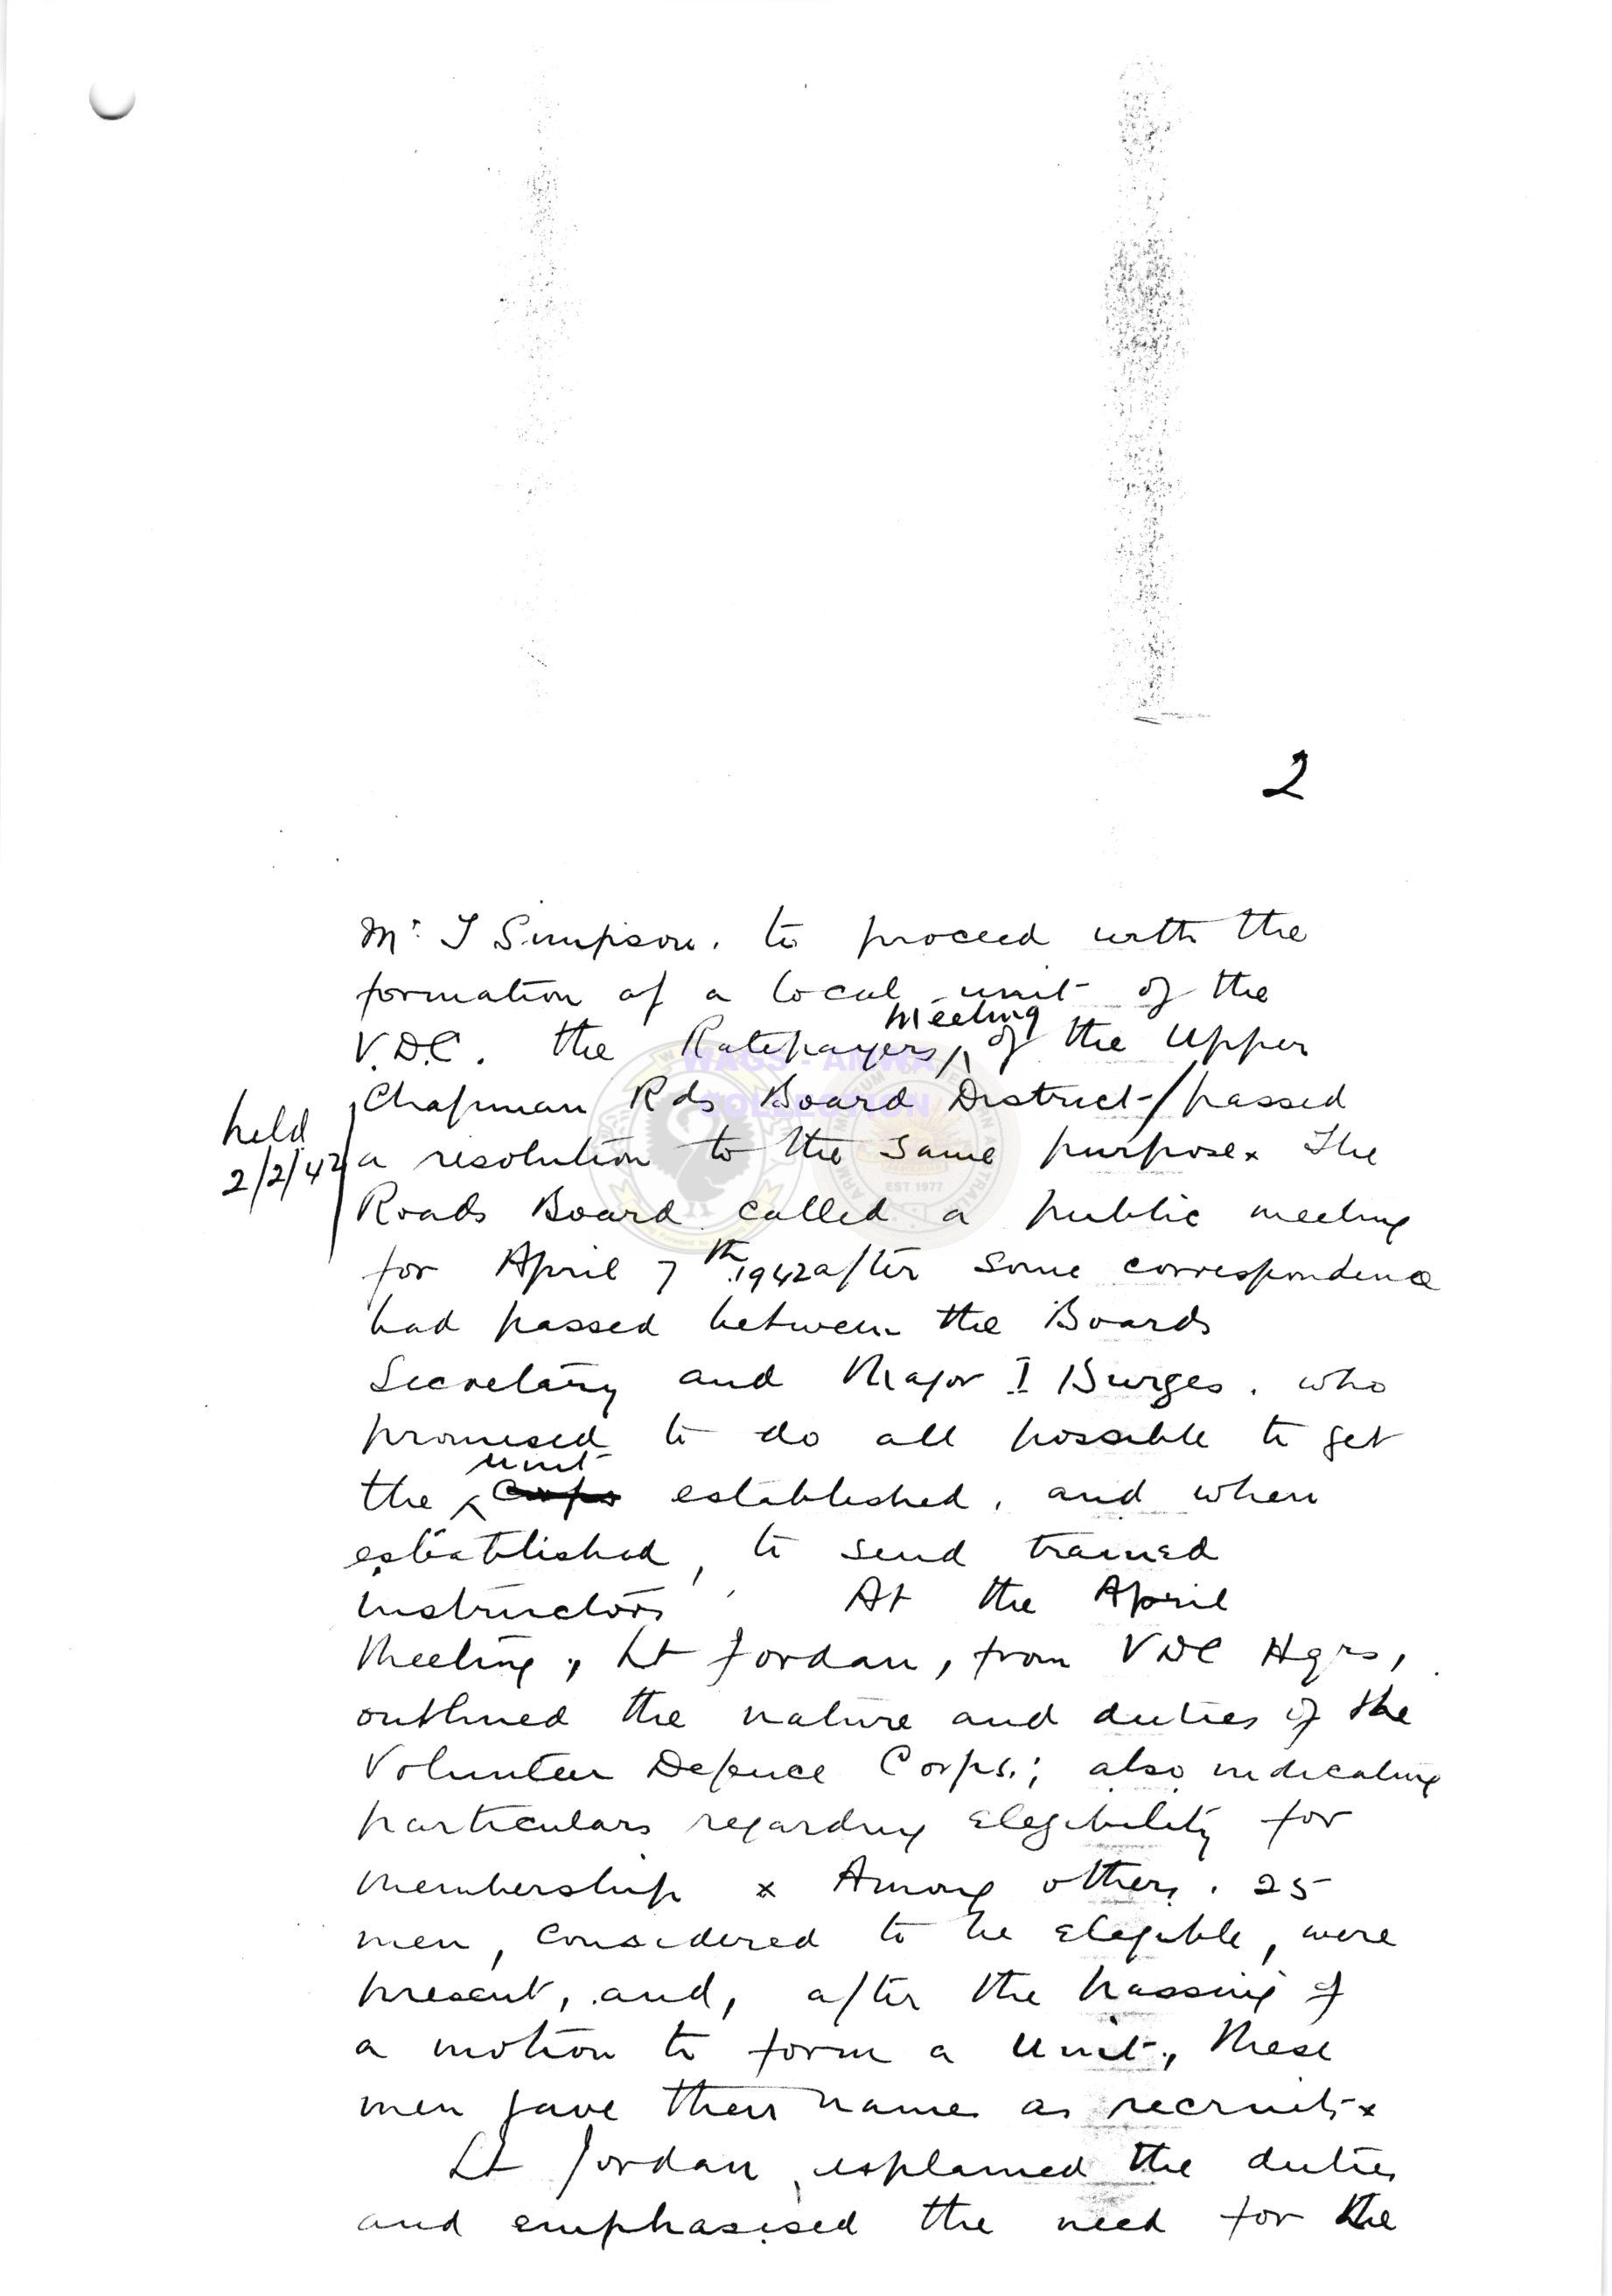 2
Mr. J Simpson. to proceed with the
formation of a local unit of the
Meeting
V.D.C. the Ratepayers, of the Upper
Chapman Rds Board District / passed
held
2/2/42
a resolution to the same purpose x The
Roads Board called a public meeting
for April 7th. 1942 after some correspondence
had passed between the Boards
Secretary and Major I Burges. who
promised to do all possible to get
unit
the Corps established, and when
established, to send trained
instructors At the April
Meeting, Lt Jordan, from VDC Hqrs,
outlined the nature and duties of the
Volunteer Defence Corps.; also indicating
particulars regarding elegibility for
membership x Among others. 25
men, considered to be elegible, were
present, and, after the passing of
a motion to form a Unit, these
men gave their names as recruits x
Lt Jordan, explained the duties
and emphasised the need for the
WAGS - AMWA
COLLECTION
EST 1977